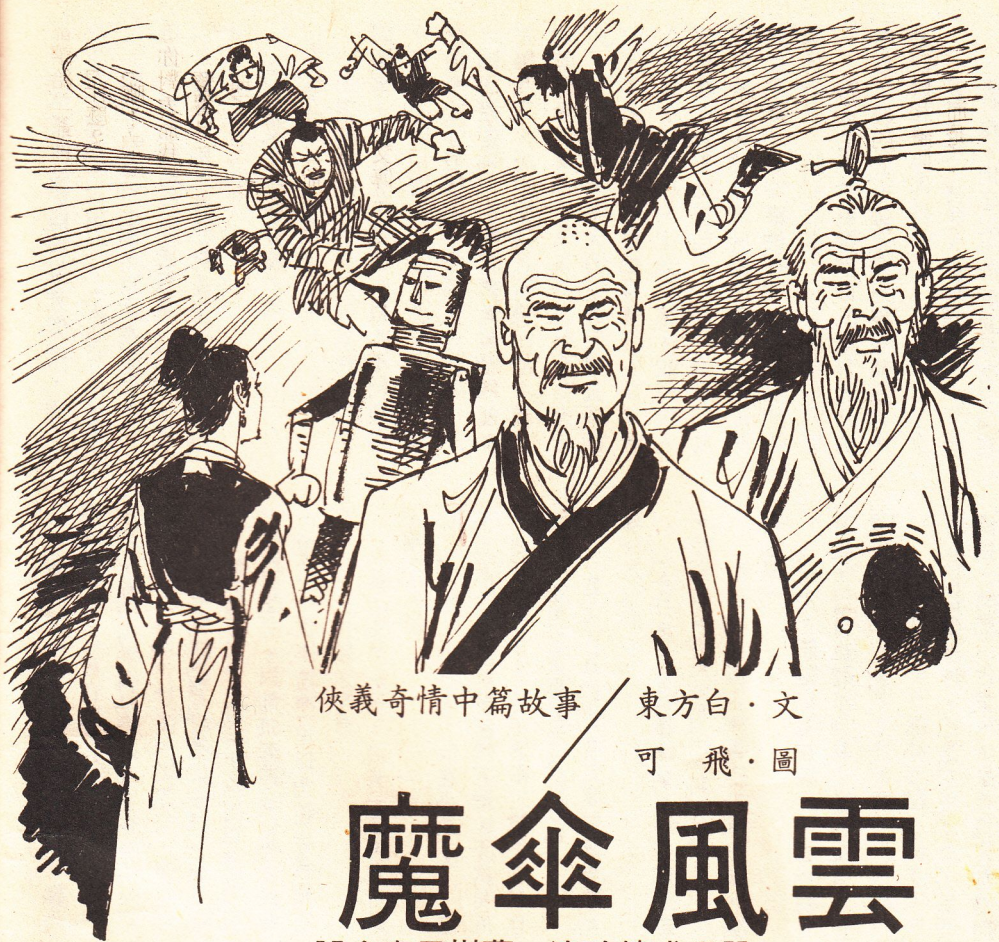 俠義奇情中篇故事
東方白·文
可飛·圖
魔傘風雲